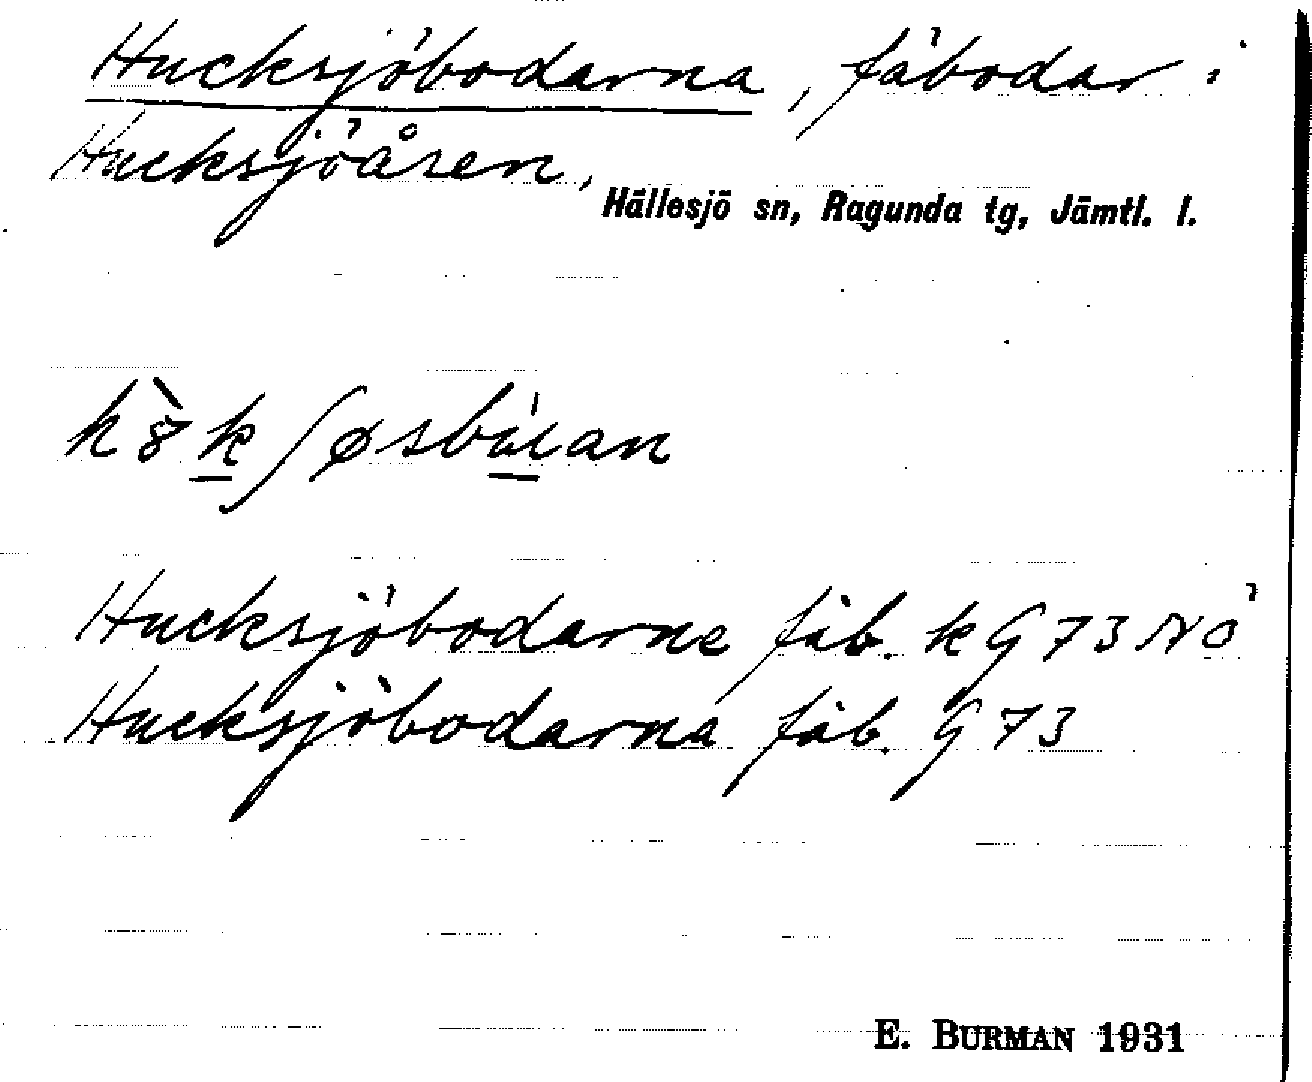 Hucksjöbodarna, fäbodar i
Hucksjöåsen,
Hällesjö sn, Ragunda tg, Jämtl. l.
Hucksjöbodarne fäb. k G 73 NÖ
Hucksjöbodarna fäb. G 73
E. BURMAN 1931